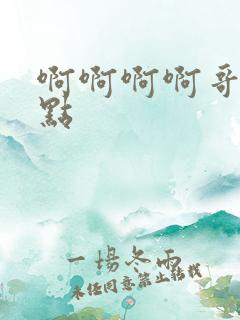 啊啊啊啊哥
點
一場冬雨
未经同意禁止转载